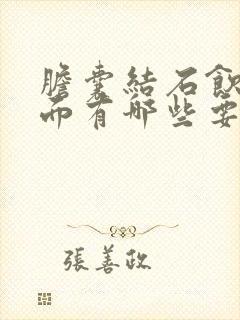 膽囊結石飲
而有哪些要
張善政